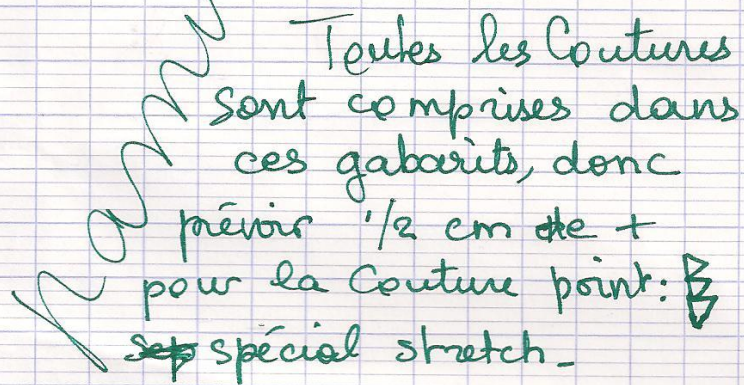 Toutes les Coutures
sont comprises dans
ces gabarits, donc
prévoir 1/2 cm de +
pour la Couture point:
spécial stretch_